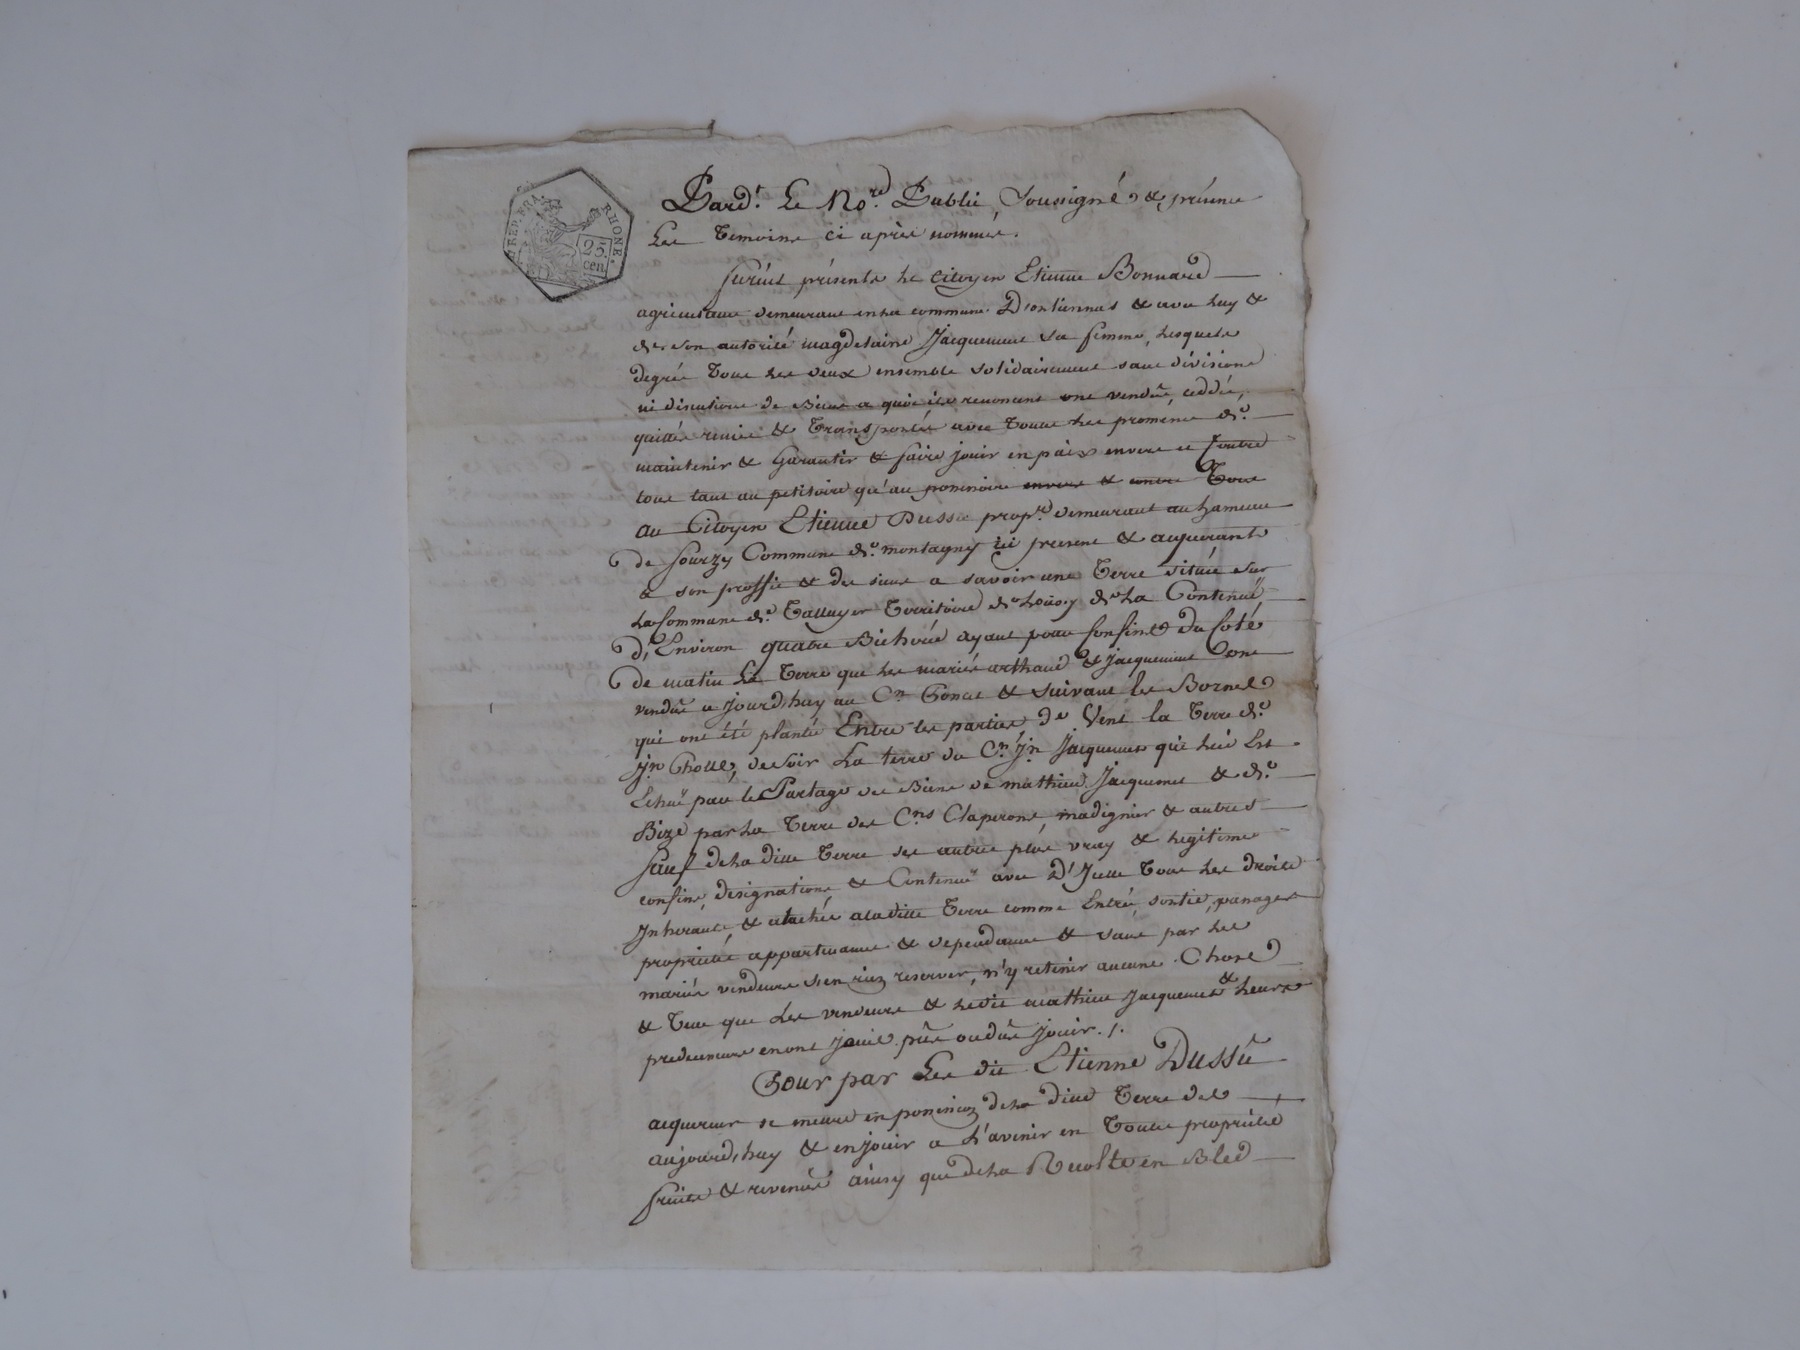 REP. FRA.
RHONE.
25.
cen.
Pard.t Le No.re Public, Soussigné & présence
Les Temoins ci après nommés.
furent présents le citoyen Etienne Bonnard
agriculteur demeurant en la commune D'orliennas & avec luy &
de son autorité magdelaine Jacquemet sa femme, lesquels
degrés Tous les deux ensemble solidairement sans divisions
ni discutions de Biens a quoi ils renoncent ont vendus, ceddés,
quittés remis & Transportés avec Toutes les promesses de
maintenir & Garantir & faire jouir en paix envers et Contre
tous tant au petitoire qu'au possessoire envers & contre Tous
au Citoyen Etienne Dussu prop.re demeurant au hameau
de Sourzy Commune de montagny ici present & acquerant
a son proffit & des siens a savoir une Terre située sur
La Commune de Talluyer Territoire de de La Contenuë
d'Environ quatre Bicherée ayant pour Confins Du Coté
De matin La Terre que les mariés arthaud & Jacquemet ont
vendus a jourd,huy au C.n Poncet & suivant les Bornes
qui ont été plantés Entre les parties de Vent la Terre de
J.n Cholle, de soir La terre du C.n J.n Jacquemet qui lui Est
Echuë par le Partage des Biens de mathieu Jacquemet & de
Bize par La Terre des C.ns Claperons, madignier & autres
Sauf de la ditte Terre ses autres plus vray & legitimes
confins, designations, & Contenuë avec D'Icelle Tous les droits
Inherants, & atachés a la ditte Terre comme Entrée, sortie, passages
propriétés appartenances & dépendances & sans par les
mariés vendeurs s'en rien reserver, n'y retenir aucune Chose
& Tout que Les vendeurs & ledit mathieu Jacquemet & leurs
predecesseurs en ont jouis pûs ou dûs jouir./.
Pour par Les dit Etienne Dussû
acquereur se mettre en possession de la ditte Terre des
aujourd,huy & en jouir a L'avenir en Toutes propriétés
fruits & revenues ainsy que de la Recolte en Bled